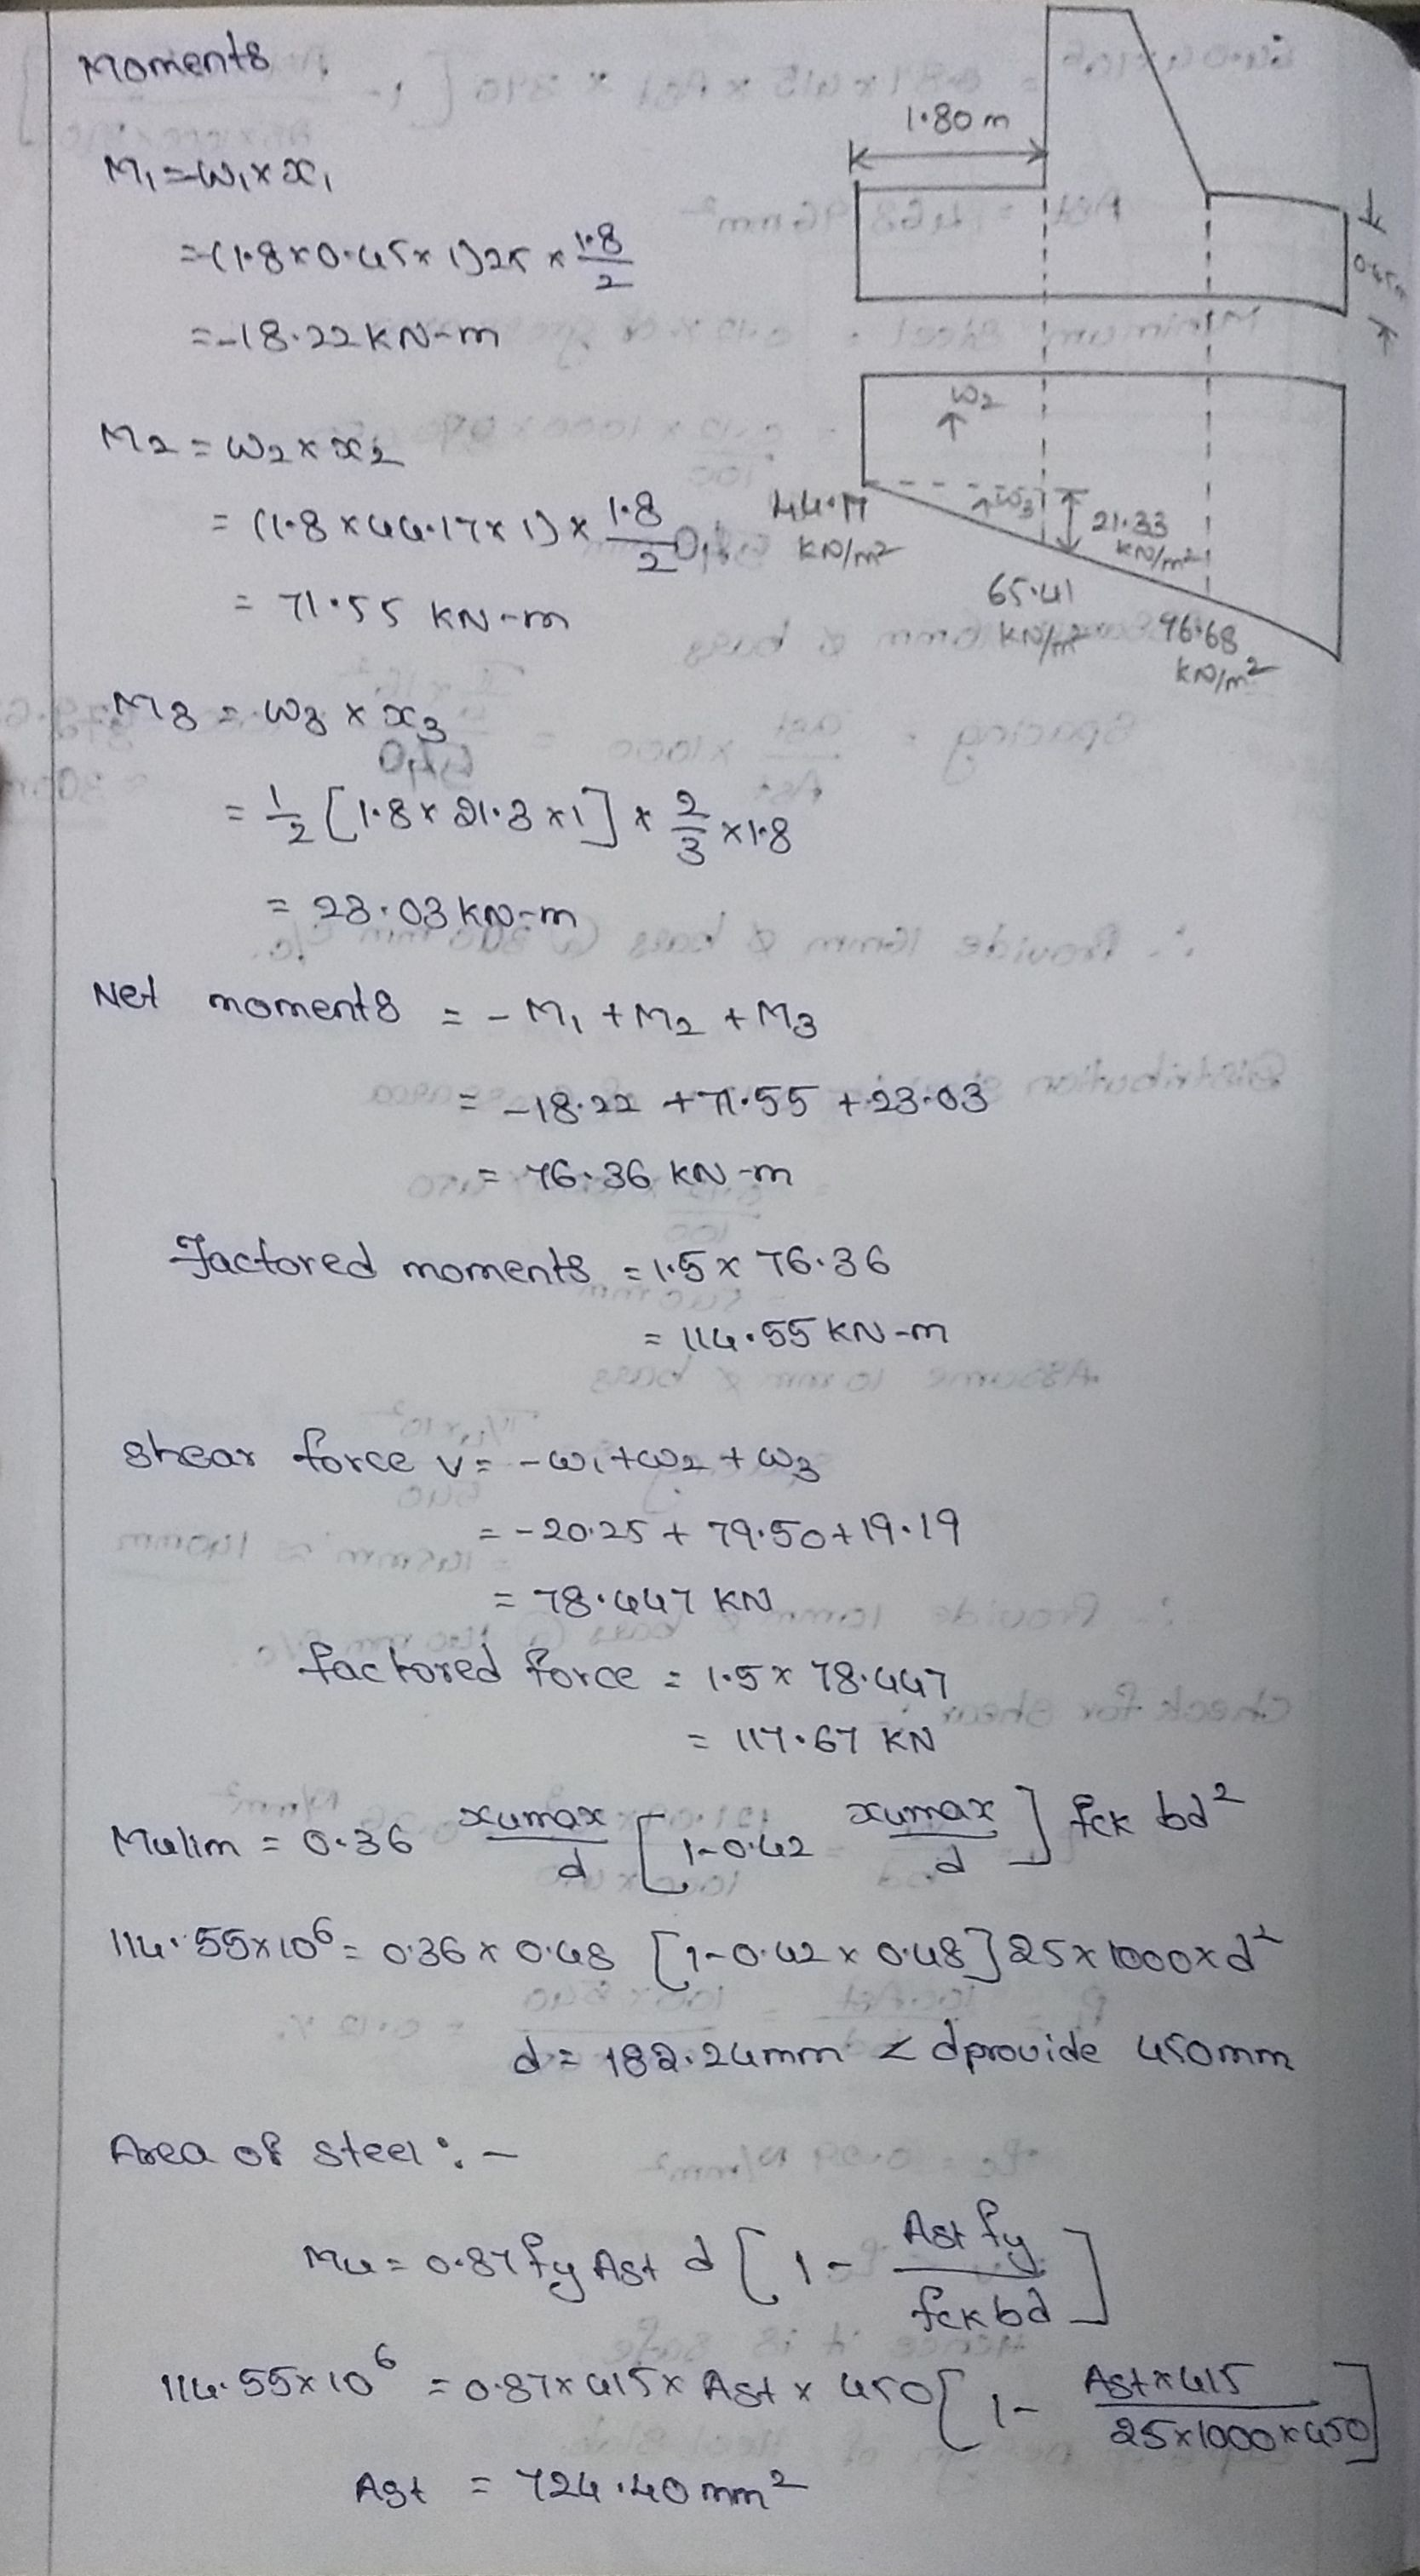 Moments
M₁ = W₁ x x₁
= -(1.8 x 0.45 x 1) 25 x 1.8/2
= -18.22 KN-m
M₂ = W₂ x x₂
= (1.8 x 44.17 x 1) x 1.8/2
= 71.55 KN-m
M₃ = W₃ x x₃
= 1/2 [1.8 x 21.3 x 1] x 2/3 x 1.8
= 23.03 KN-m
Net moments = - M₁ + M₂ + M₃
= -18.22 + 71.55 + 23.03
= 76.36 KN-m
Factored moments = 1.5 x 76.36
= 114.55 KN-m
Shear force V = - W₁ + W₂ + W₃
= - 20.25 + 79.50 + 19.19
= 78.447 KN
factored force = 1.5 x 78.447
= 117.67 KN
Mulim = 0.36 xumax/d [1 - 0.42 xumax/d] fck bd²
114.55 x 10⁶ = 0.36 x 0.48 [1 - 0.42 x 0.48] 25 x 1000 x d²
d = 182.24mm < dprovide 450mm
Area of steel :-
Mu = 0.87 fy Ast d [1 - Ast fy / fck bd]
114.55 x 10⁶ = 0.87 x 415 x Ast x 450 [1 - Ast x 415 / 25 x 1000 x 450]
Ast = 724.40 mm²
1.80 m
0.45m
W₂
W₃
44.17
KN/m²
21.33
KN/m²
65.41
KN/m²
96.68
KN/m²